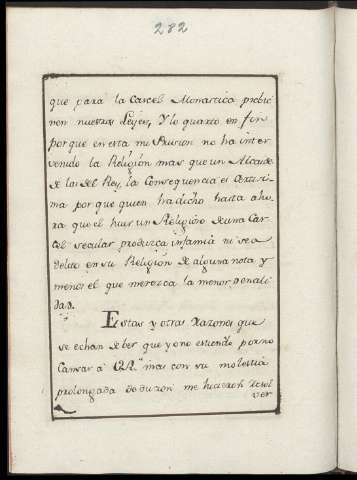 282
que para la Carcel Monastica previe
nen nuestras Leyes, Y lo quarto en fin
porque en esta mi Prision no ha inter
venido la Religión mas que un Alcaide
de las del Rey, la Consequencia es Certisi
ma porque quien ha dicho hasta aho
ra que el huir un Religioso de una Car
cel secular produzca infamia ni sea
delito en su Religion de alguna nota y
menos el que merezca la menor penali
dad.
Estas y otras razones que
se echan de ber que yo no extiendo por no
Cansar a mas con su molestia
prolongada me hicieron resol
ver